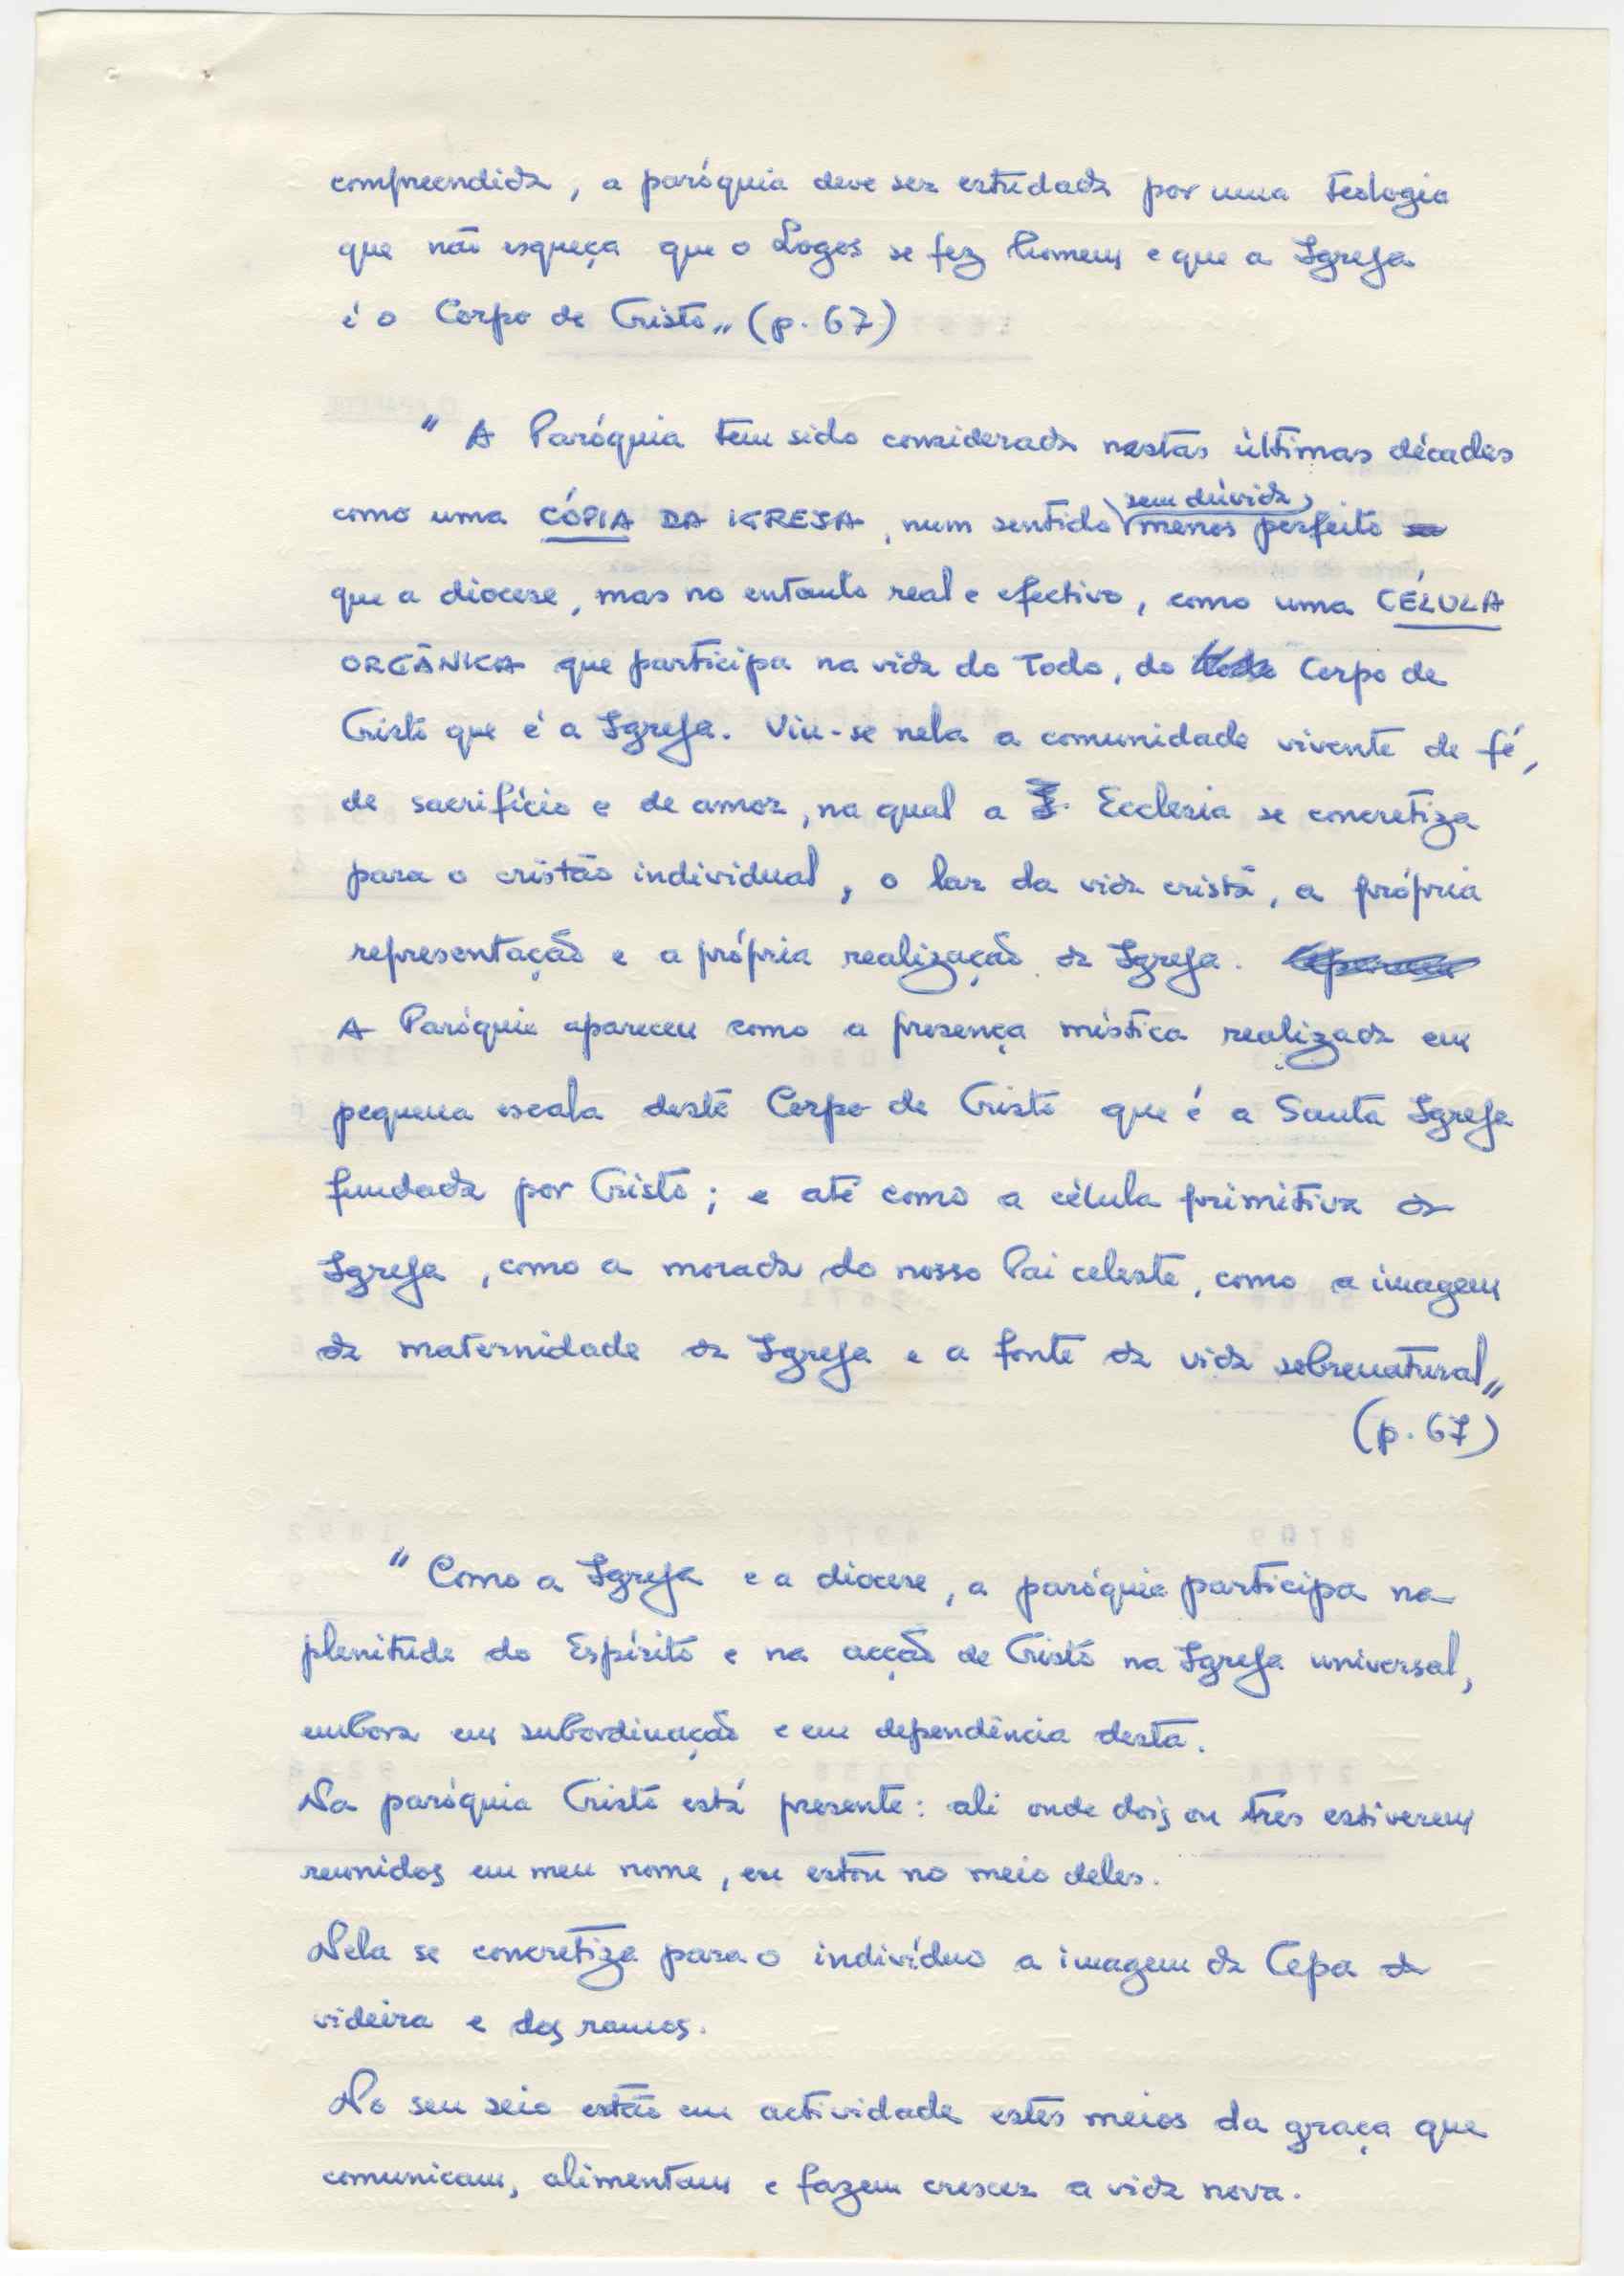 compreendida, a paróquia deve ser estudada por uma teologia
que não esqueça que o Logos se fez homem e que a Igreja
é o Corpo de Cristo„ (p. 67)
" A Paróquia tem sido considerada nestas últimas décadas
como uma CÓPIA DA IGREJA, num sentido sem dúvida, menos perfeito
que a diocese, mas no entanto real e efectivo, como uma CÉLULA
ORGÂNICA que participa na vida do Todo, do Corpo de
Cristo que é a Igreja. Viu-se nela a comunidade vivente de fé,
de sacrifício e de amor, na qual a Ecclesia se concretiza
para o cristão individual, o lar da vida cristã, a própria
representação e a própria realização da Igreja.
A Paróquia apareceu como a presença mística realizada em
pequena escala deste Corpo de Cristo que é a Santa Igreja
fundada por Cristo; e até como a célula primitiva da
Igreja, como a morada do nosso Pai celeste, como a imagem
da maternidade da Igreja e a fonte da vida sobrenatural„
(p. 67)
" Como a Igreja e a diocese, a paróquia participa na
plenitude do Espírito e na acção de Cristo na Igreja universal,
embora em subordinação e em dependência desta.
Na paróquia Cristo está presente: ali onde dois ou três estiverem
reunidos em meu nome, eu estou no meio deles.
Nela se concretiza para o indivíduo a imagem da Cepa da
videira e dos ramos.
No seu seio estão em actividade estes meios da graça que
comunicam, alimentam e fazem crescer a vida nova.